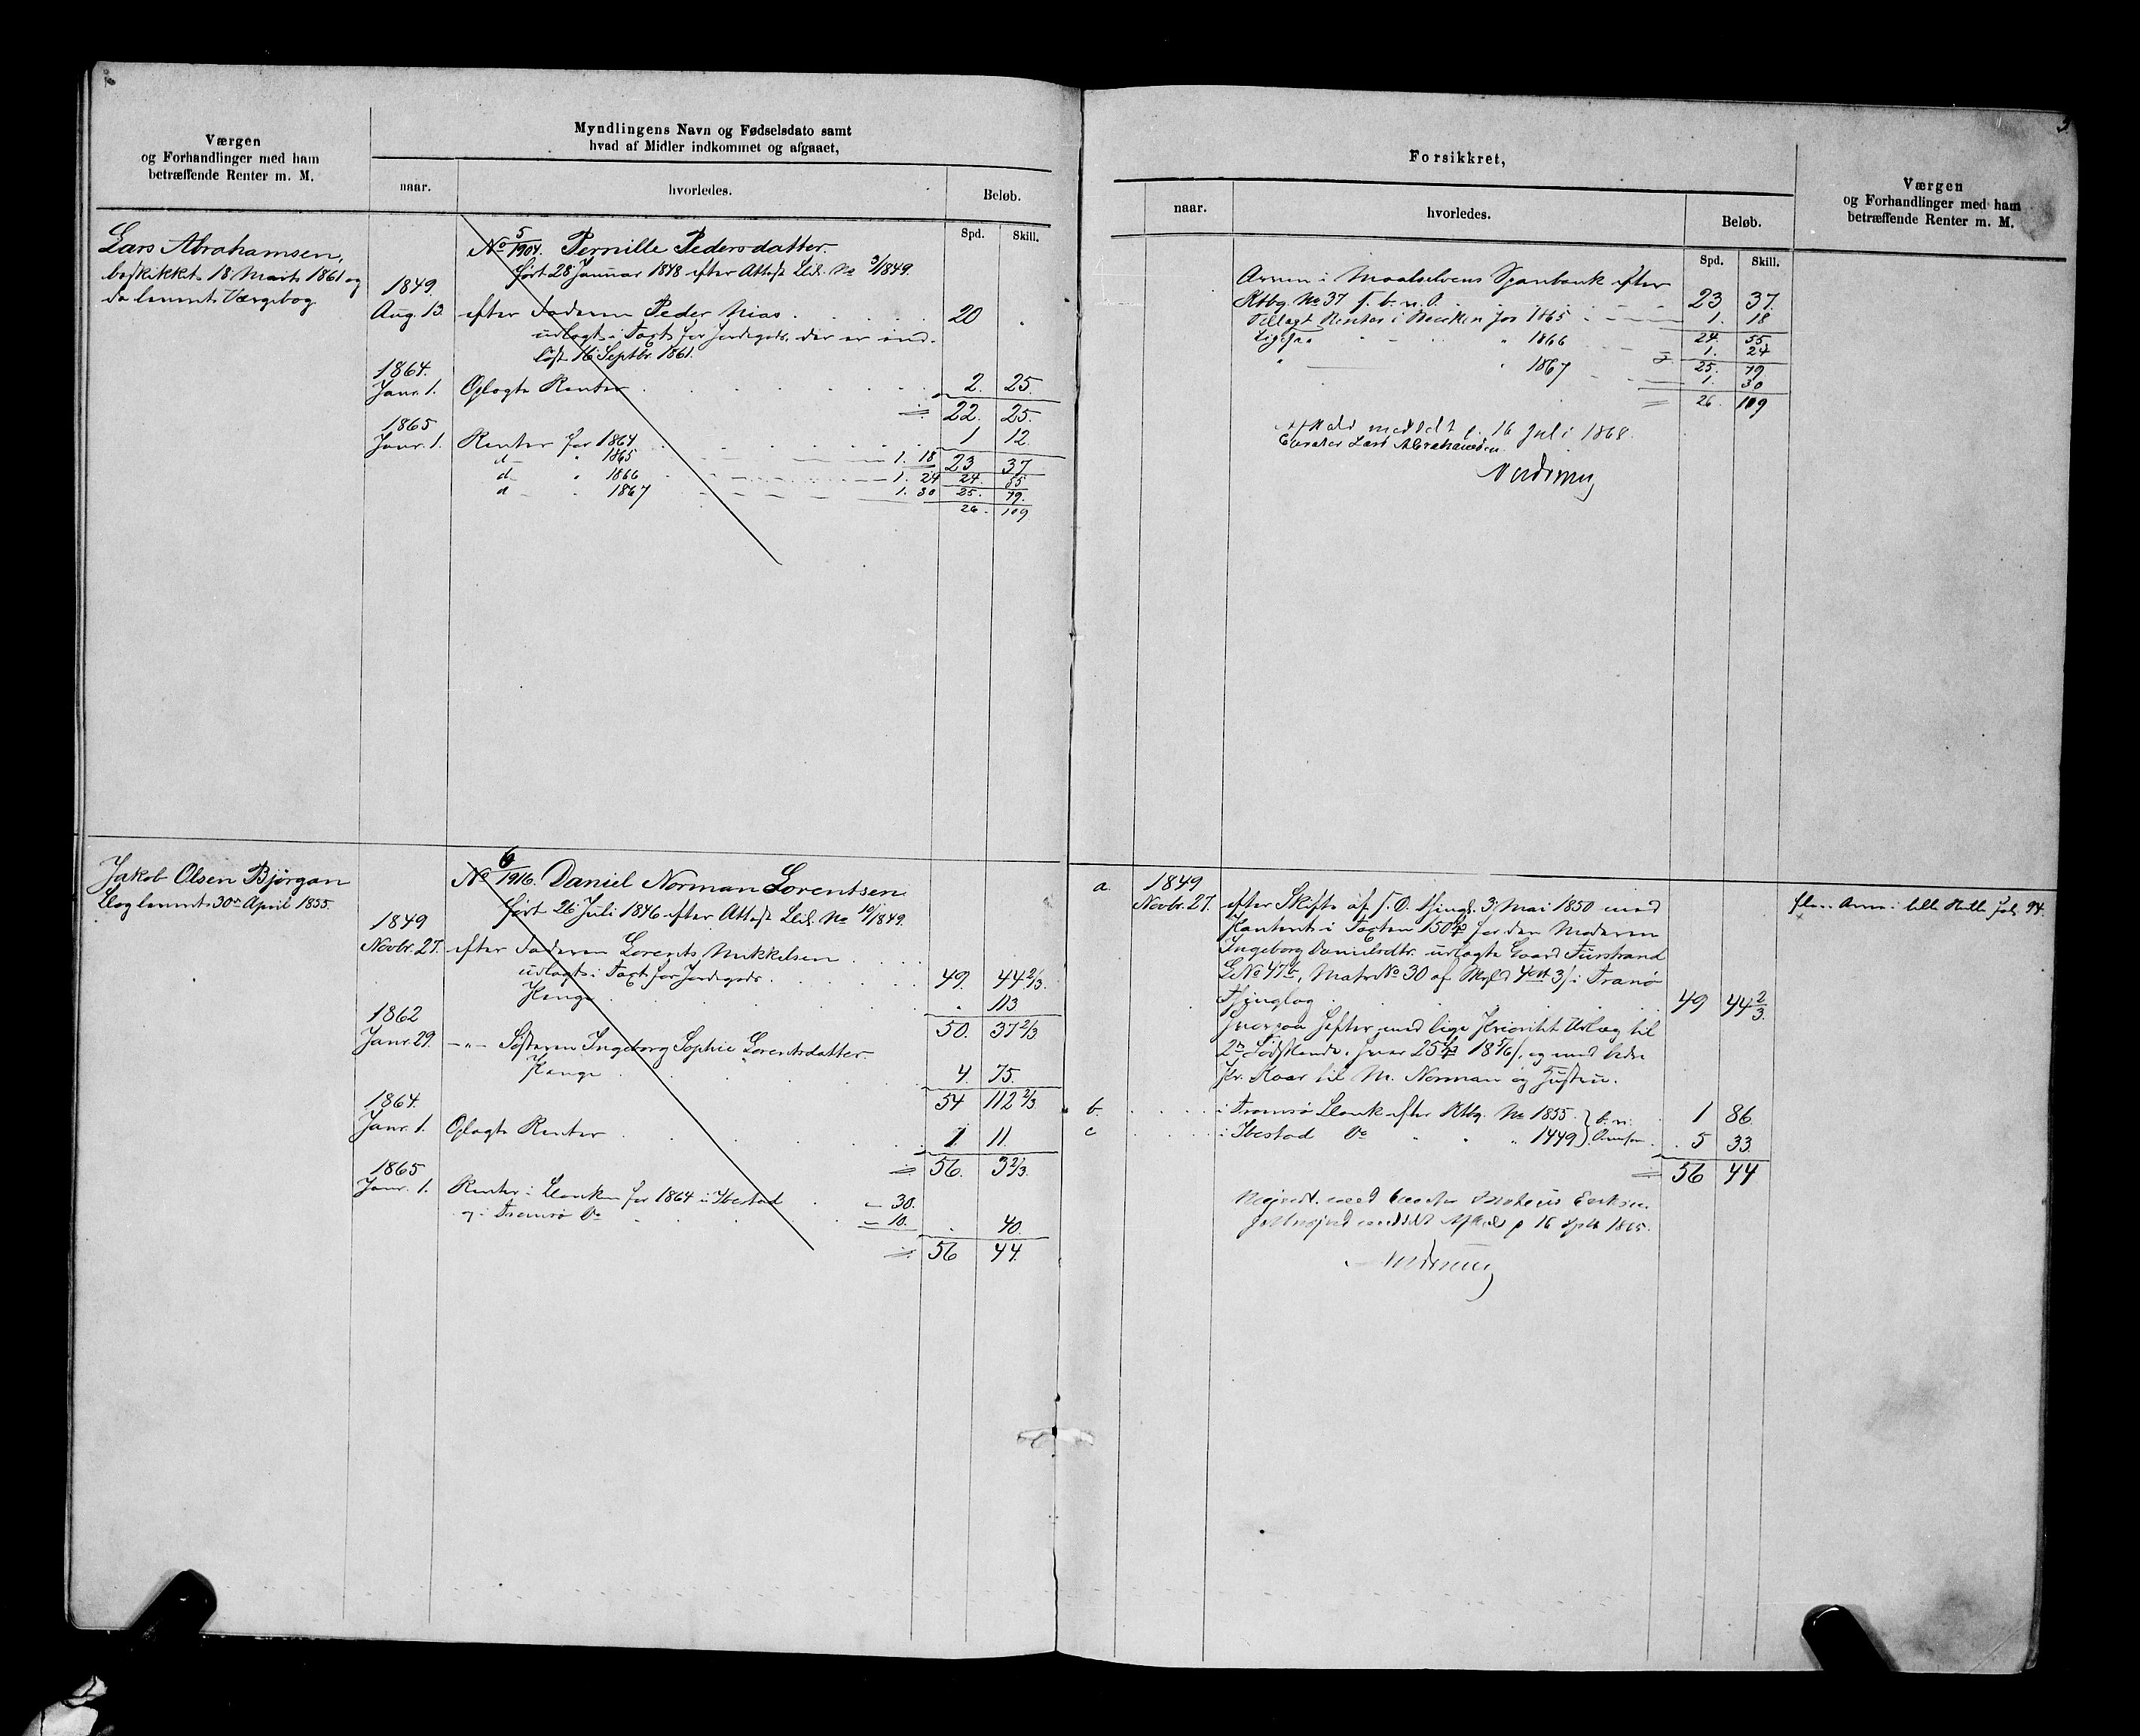 Værgen
og Forhandlinger med ham
betræffende Renter m. M.
Myndlingens Navn og Fødselsdato samt
hvad af Midler indkommet og afgaaet,
naar.
hvorledes.
Beløb.
Spd. Skill.
Lars Abrahamsen,
beskikket 18 Marts 1861 og
da leveret Værgebog.
No 5/1904. Pernille Pedersdatter.
født 28 Januar 1848 efter Attest Bil. No 3/1849.
1849.
Aug. 13. efter Faderen Peder Nias . 20 .
udlagt i Taxt for Jordegods, der er ind-
løst 16 Septbr. 1861.
1864.
Janr. 1. Oplagte Renter . 2. 25.
22. 25.
1865
Janr. 1. Renter for 1864 1 12.
d " 1865 1. 18 23 37
d " 1866 1. 24 24. 55
d " 1867 1. 30 25. 79.
26. 109
Jakob Olsen Bjørgan
Bog leveret 30te April 1855.
No 6/1916. Daniel Norman Lorentsen
født 26 Juli 1846 efter Attest Bil. No 10/1849.
1849
Novbr. 27. efter Faderen Lorents Mikkelsen
udlagt i Taxt for Jordegods . 49. 44 2/3.
Penge . " 113
1862 50. 37 2/3
Janr. 29. — " — Søsteren Ingeborg Sophie Lorentsdatter
Penge . 4. 75.
1864. 54 112 2/3.
Janr. 1. Oplagte Renter . 1. 11.
1865 56. 3 2/3.
Janr. 1. Renter i Banken for 1864 i Ibestad 30.
og i Tromsø Do 10. 40.
56 44.
Forsikkret,
naar.
hvorledes.
Beløb.
Værgen
og Forhandlinger med ham
betræffende Renter m. M.
Spd. Skill.
Arven i Maalselvens Sparebank efter
Ktbg. No 37 f. b. n. O. 23 37.
Tillagt Renter i Banken for 1865 1. 18
24. 55
Ligesaa " 1866 1. 24
25. 79
" 1867 1. 30
26. 109
Afkald meddelt p. 16 Juli 1868.
Curator Lars Abrahamsen
a. 1849
Novbr. 27. efter Skifte af s. D. thingl. 3 Mai 1850 med
Panteret i Taxten 150 for den Moderen
Ingeborg Danielsdtr. udlagte Gaard Furstrand
G No 47b, Matr. No 30 af Skyld 4 ort 3 ß i Tranø
Thinglag . 49 44 2/3.
hvorpaa hefter med lige Prioritet Udlæg til
2de Sødskende, hver 25 18 5/6 ß, og med bedre
Pr. Kaar til M. Norman og Hustru.
b. i Tromsø Bank efter Ktbg. No 1855 b. n. 1 86.
c i Ibestad Do " " 1449 5 33.
56 44
meddelt Afkald p 16 1865.